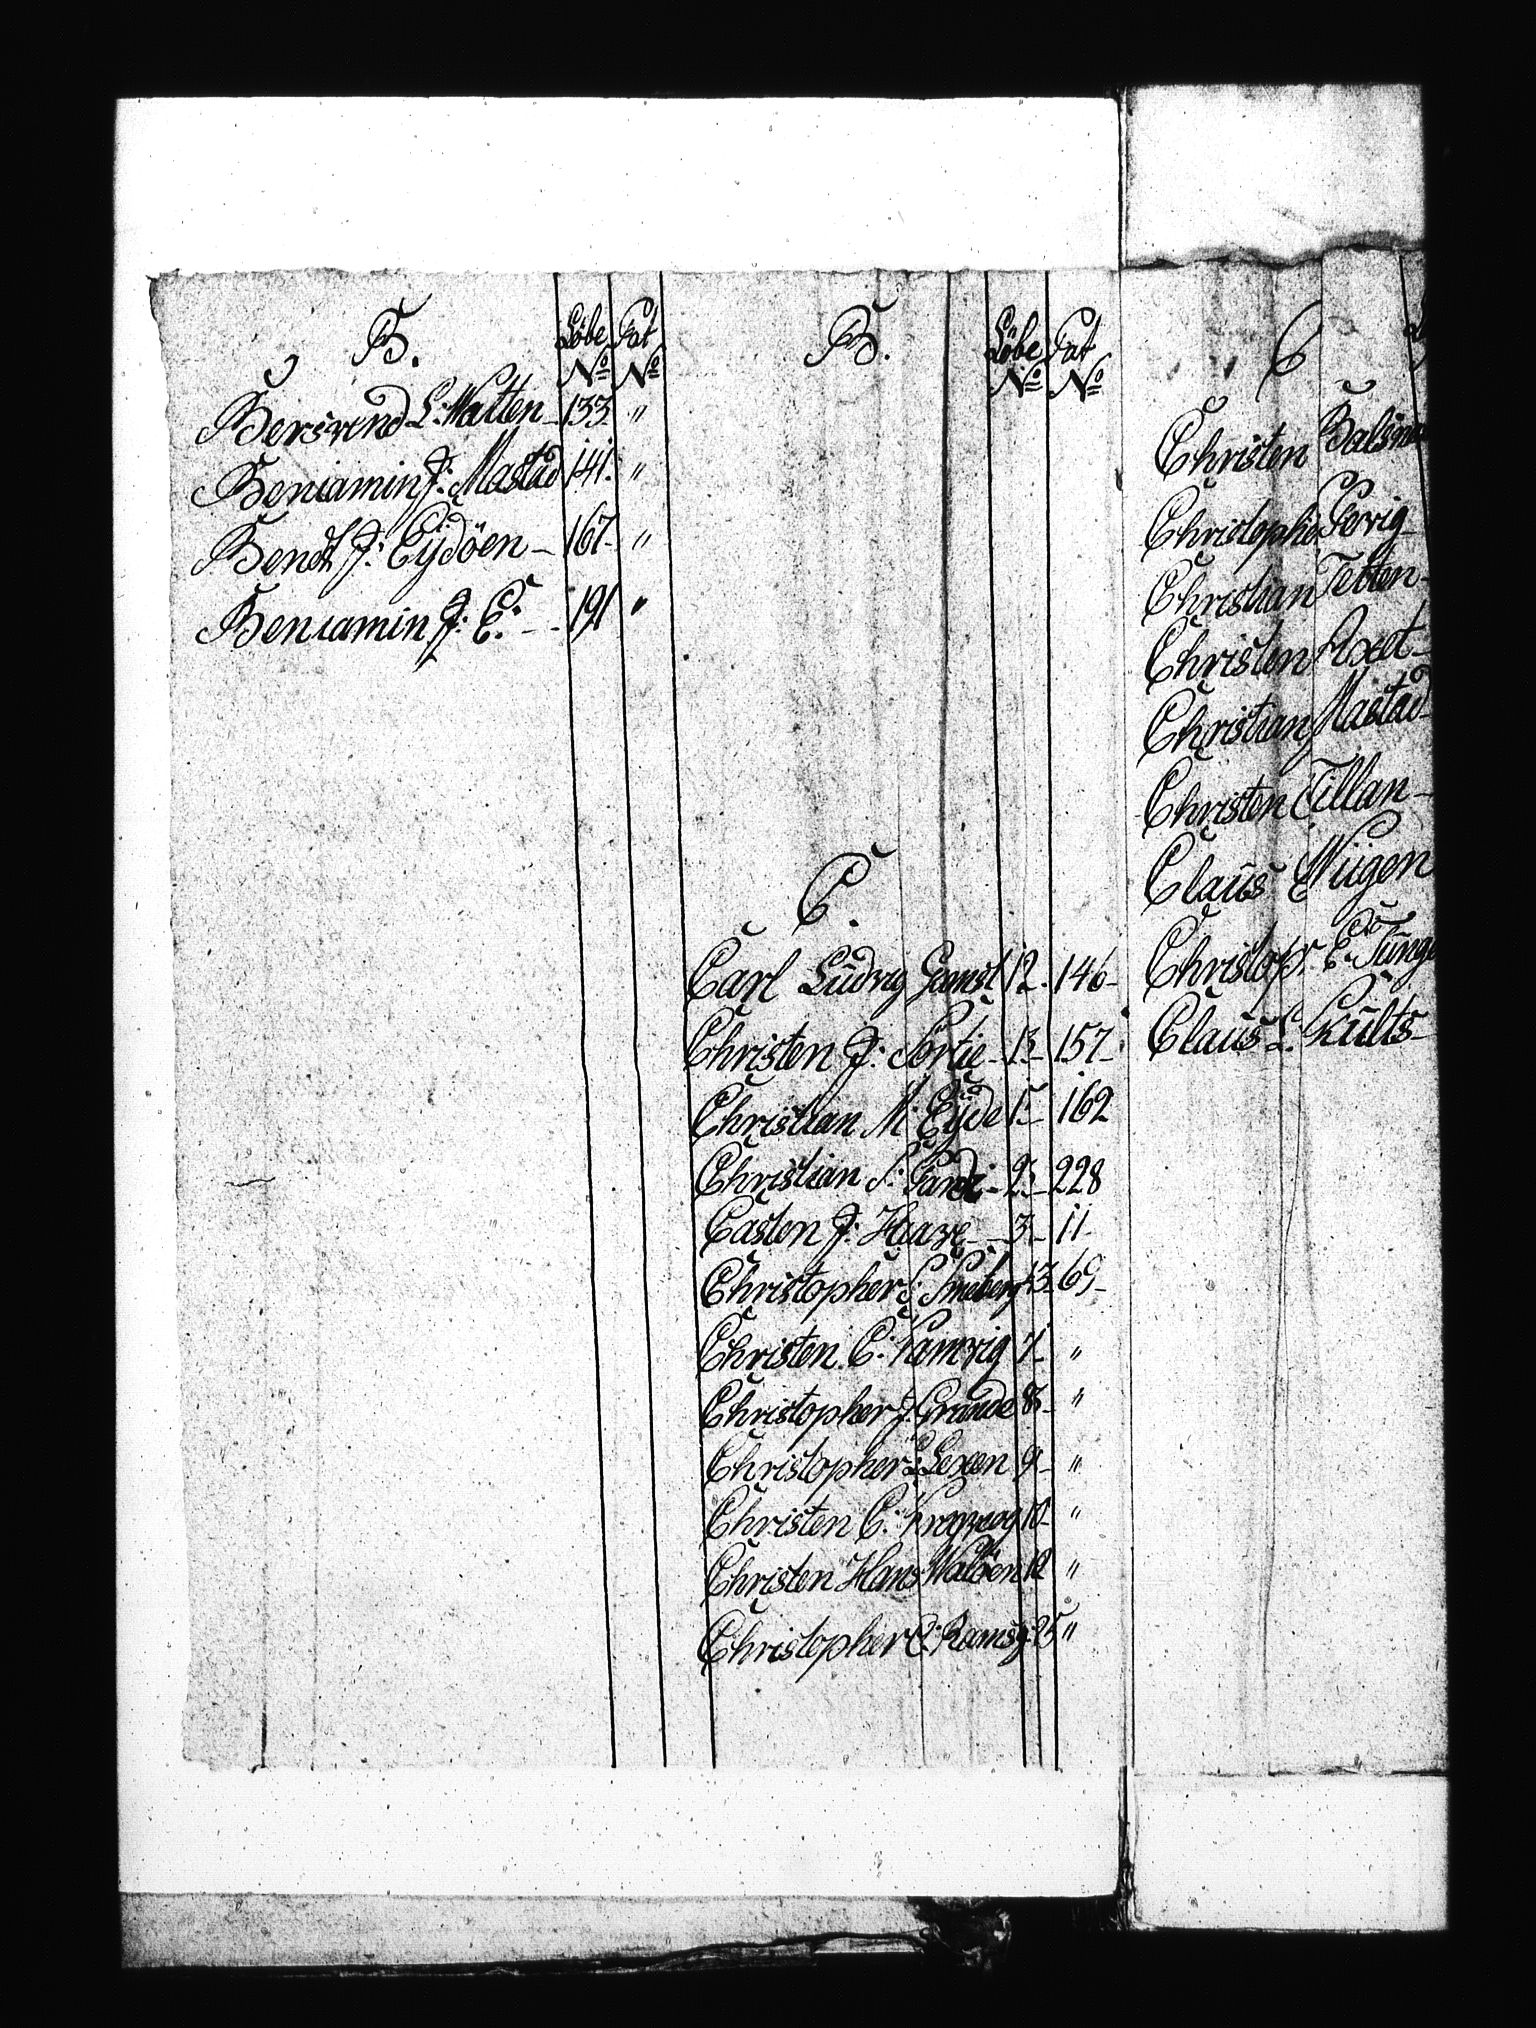 B.
Löbe No
Pat No
Bersvend L: Walten - 133 - "
Beniamin J: Mastad 141. "
Bendt J: Eijdöen - 167 - "
Beniamin J: E. - - 191 "
B.
Löbe No
Pat No
C.
Carl Ludvig Gamst 12. 146 -
Christen J: Sortie - 13 - 157 -
Christian M: Eijde 15 - 162
Christian S: - 23 - 228
Casten J: Haave - 3 - 11 -
Christopher S: 13 - 69 -
Christen C: 7 - "
Christopher J: Grande 8 - "
Christopher L: Lexen 9 - "
Christen C: 10 - "
Christen Hans Waldöen 12 "
Christopher C: Ramsv: 25 "
C
Christen
Christophe
Christian Tetten -
Christen Axet -
Christian Mastad -
Christen Tillan -
Claus Wiigen
Christop: E:
Claus L: